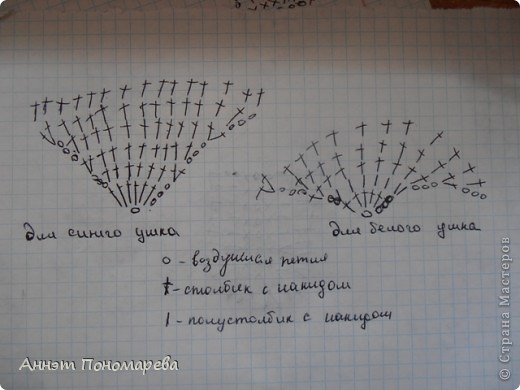 для синего ушка
для белого ушка
o - воздушная петля
† - столбик с накидом
| - полустолбик с накидом
Аннэт Пономарева
© Страна Мастеров